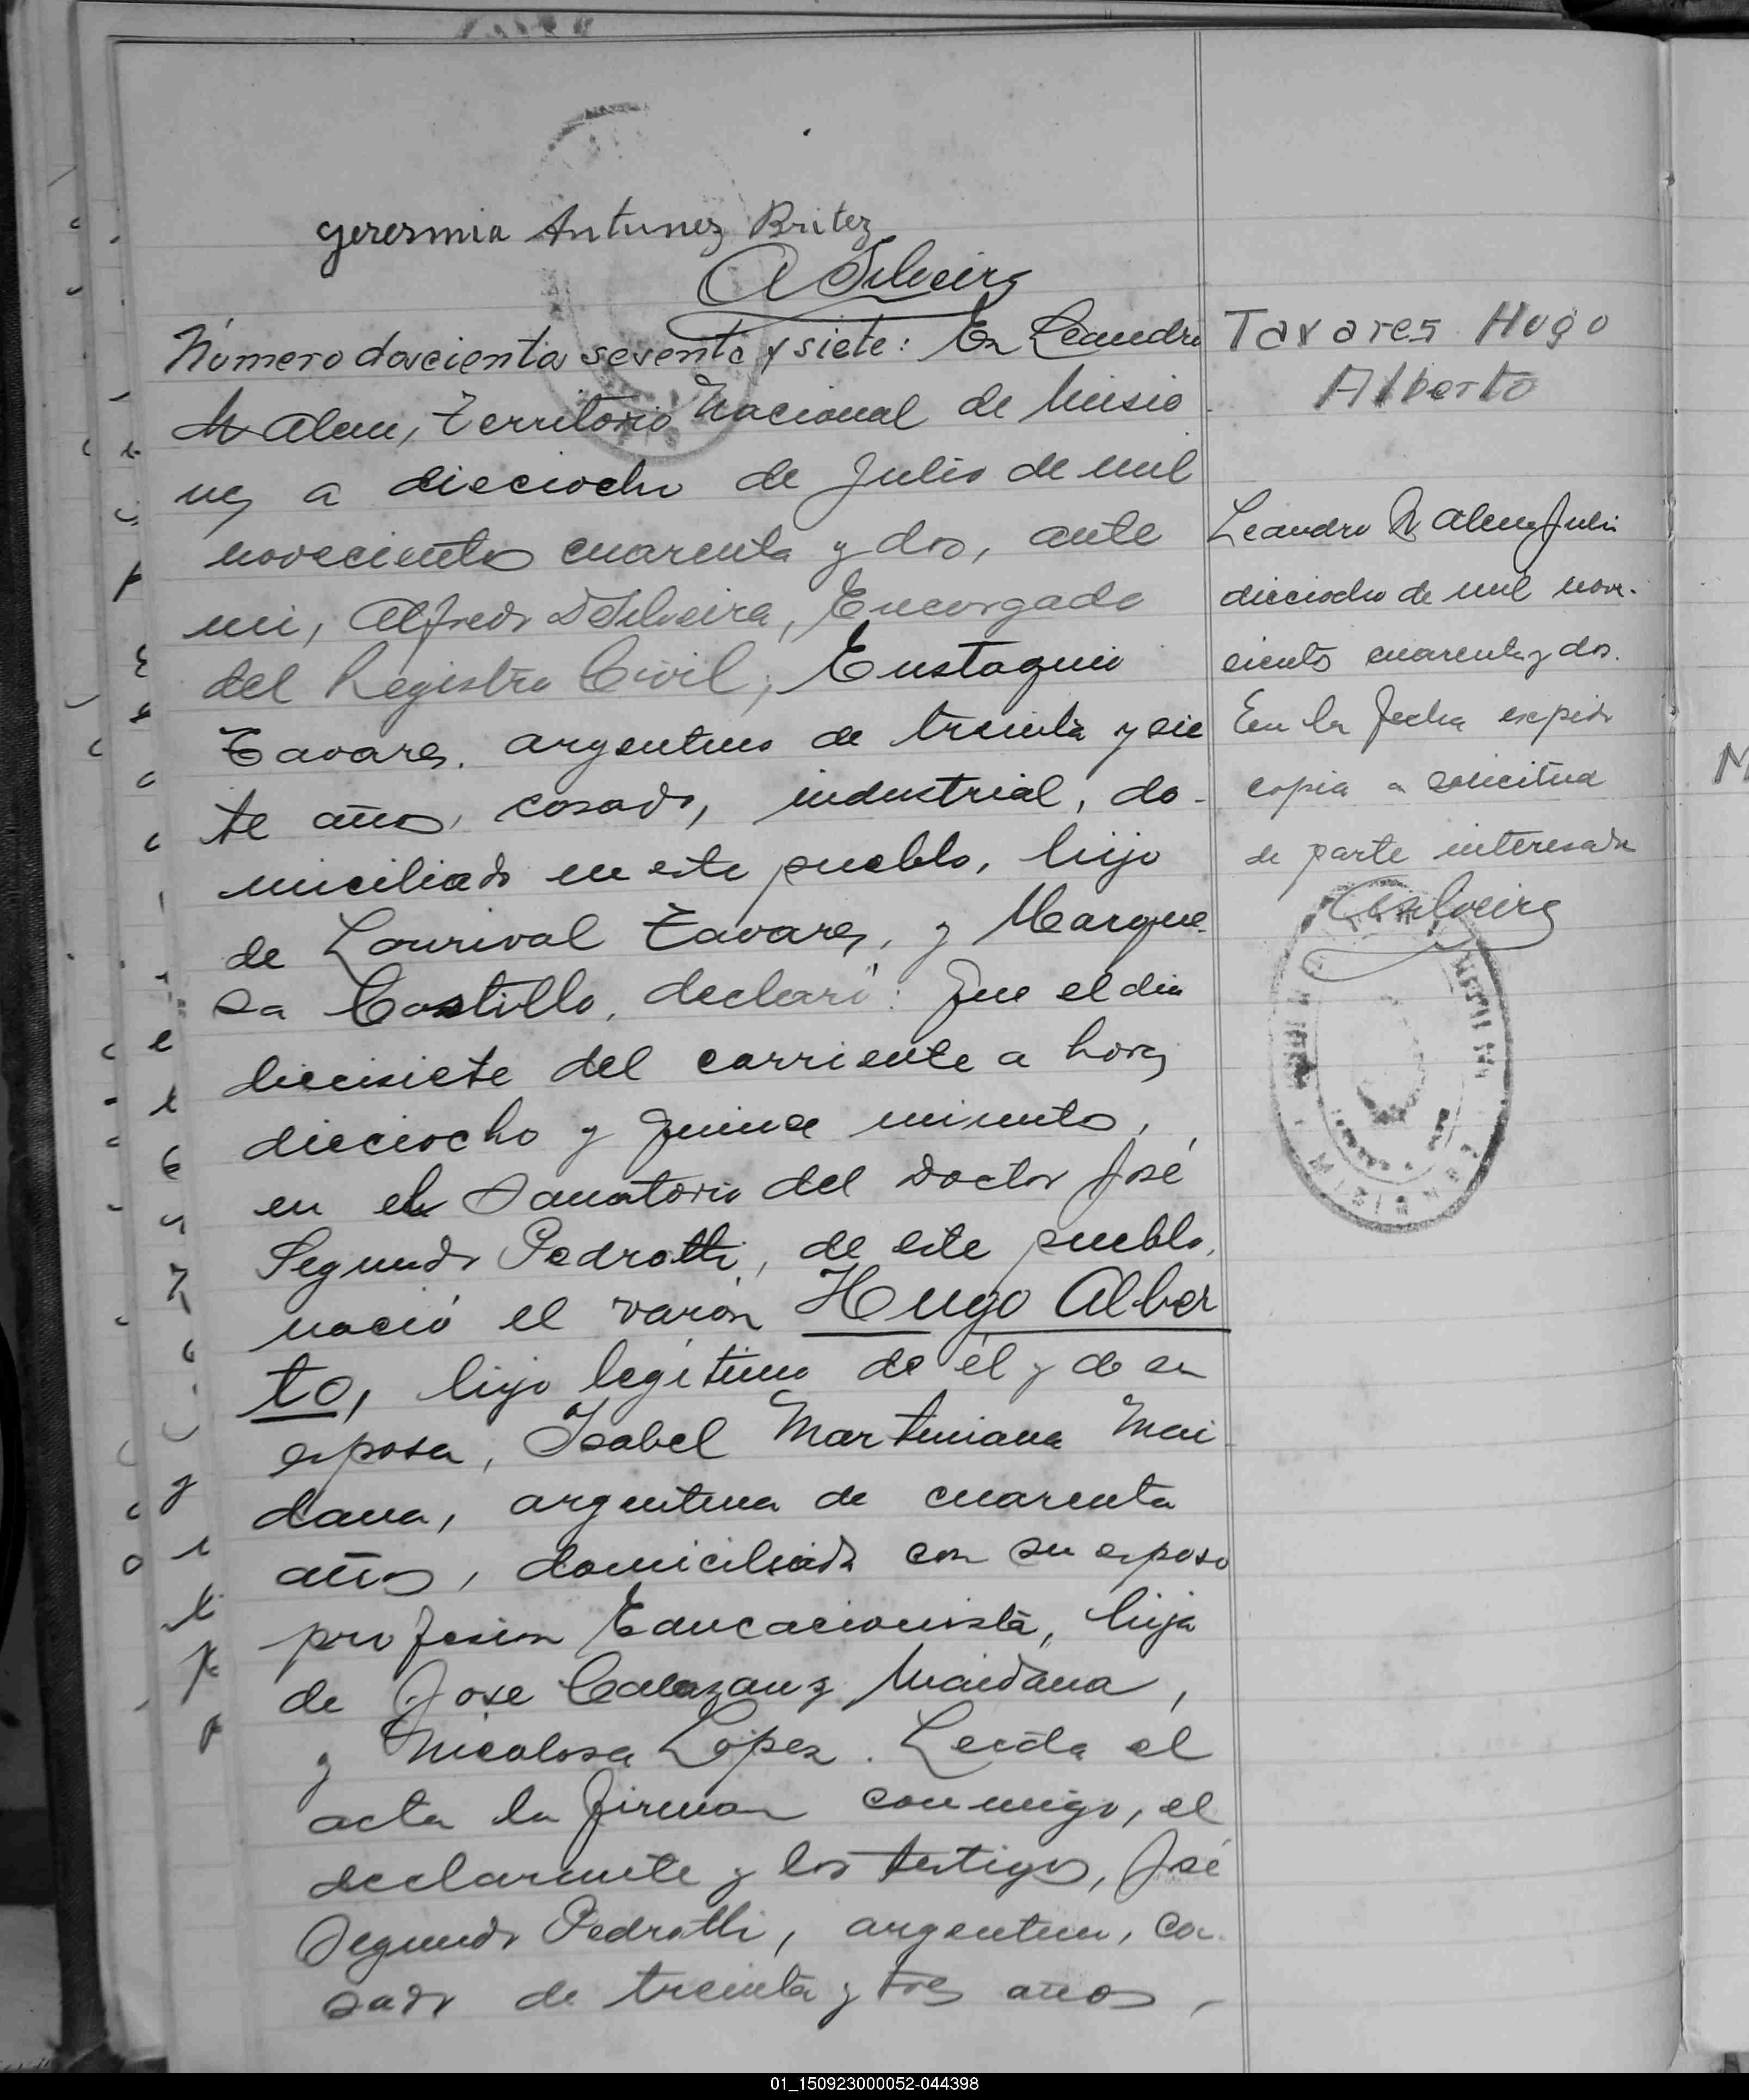 Jeresmia Antunez Britez
A DSilveira
Número doscienta seventa y siete: En Leandro
N Alem, Territorio Nacional de Misio
nes a dieciocho de Julio de mil
novecientos cuarenta y dos, ante
mi, Alfredo DSilveira, Encargado
del Registro Civil, Eustaquio
Tavares, argentino de treinta y sie
te años, casado, industrial, do-
miciliado en este pueblo, hijo
de Lourival Tavares, y Marque-
sa Castillo, declaró: Que el dia
diecisiete del corriente a horas
dieciocho y quince minutos,
en el Sanatorio del Doctor José
Segundo Pedrotti, de este pueblo,
nació el varón Hugo Alber
to, hijo legítimo de él y de su
esposa, Isabel Martiniana Mai
dana, argentina de cuarenta
años, domiciliada con su esposo
profesion Educacionista, hija
de Jose Calazanz Maidana,
y Nicolosa López. Leida el
acta la firman conmigo, el
declarante y los testigos, José
Segundo Pedrotti, argentino, ca-
sado de treinta y tres años,
Tavares Hugo
Alberto
Leandro N Alem, Julio
dieciocho de mil nove-
cientos cuarenta y dos.
En la fecha expido
copia a solicitud
de parte interesada
ADSilveira
MISIONES
01_150923000052-044398